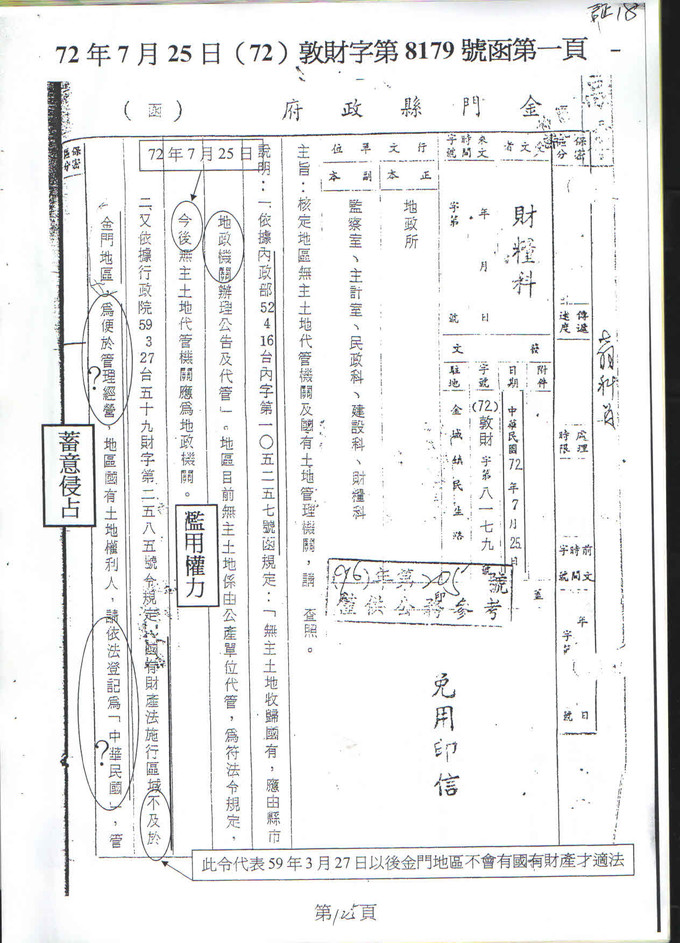 証18
72年7月25日（72）敦財字第8179號函第一頁
金門縣政府（函）
保密區分
受文者
財糧科
傳遞速度
處理時限
前文時間字號
年
日
字第
號
來文時間字號
年 月 日
字第 號
發文
附件
日期
中華民國72年7月25日
字號
(72)敦財字第八一七九號
駐地
金城鎮民生路
蓋
免用印信
行文單位
正本
地政所
副本
監察室、主計室、民政科、建設科、財糧科
(96)年第205號
僅供公務參考
主旨：核定地區無主土地代管機關及國有土地管理機關，請 查照。
72年7月25日
說明：一、依據內政部52 4 16台內字第一〇五二五七號函規定：「無主土地收歸國有，應由縣市
地政機關辦理公告及代管」。地區目前無主土地係由公產單位代管，為符法令規定，
今後無主土地代管機關應為地政機關。
濫用權力
二、又依據行政院59 3 27台五十九財字第二五八五號令規定：國有財產法施行區域不及於
金門地區，為便於管理經營，地區國有土地權利人，請依法登記為「中華民國」，管
？
？
蓄意侵占
保密區分
此令代表59年3月27日以後金門地區不會有國有財產才適法